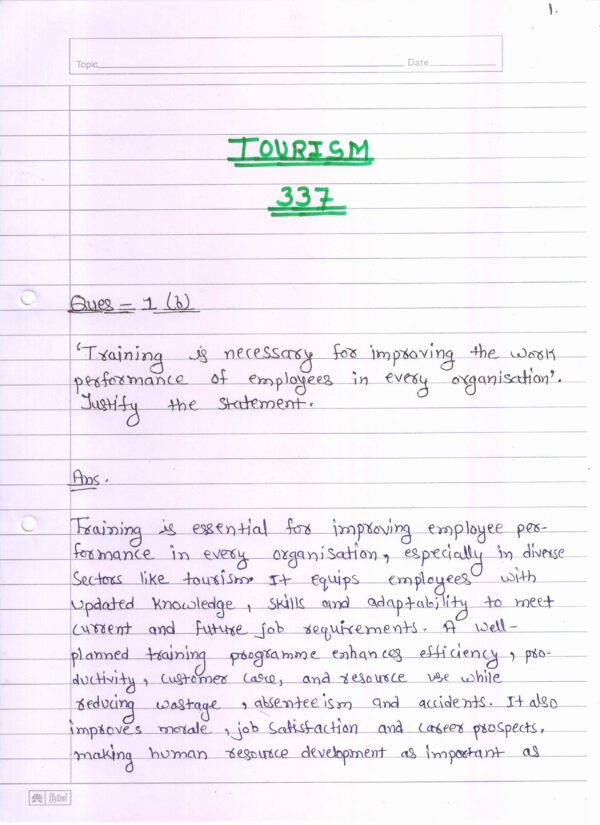 1.
Topic Date
TOURISM
337
Ques = 1 (b)
'Training is necessary for improving the work
performance of employees in every organisation'.
Justify the statement.
Ans.
Training is essential for improving employee per-
formance in every organisation, especially in diverse
Sectors like tourism. It equips employees with
updated knowledge, skills and adaptability to meet
current and future job requirements. A well-
planned training programme enhances efficiency, pro-
ductivity, customer care, and resource use while
reducing wastage, absenteeism and accidents. It also
improves morale, job satisfaction and career prospects,
making human resource development as important as